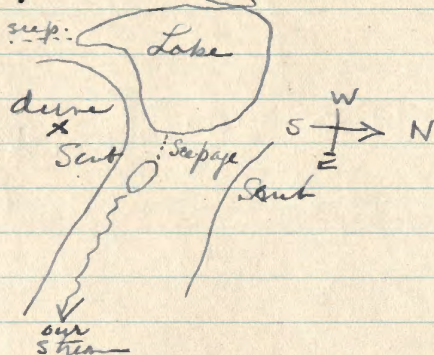 seep.
Lake
dune
x
Scrub
Seepage
Scrub
W
S N
E
our
stream